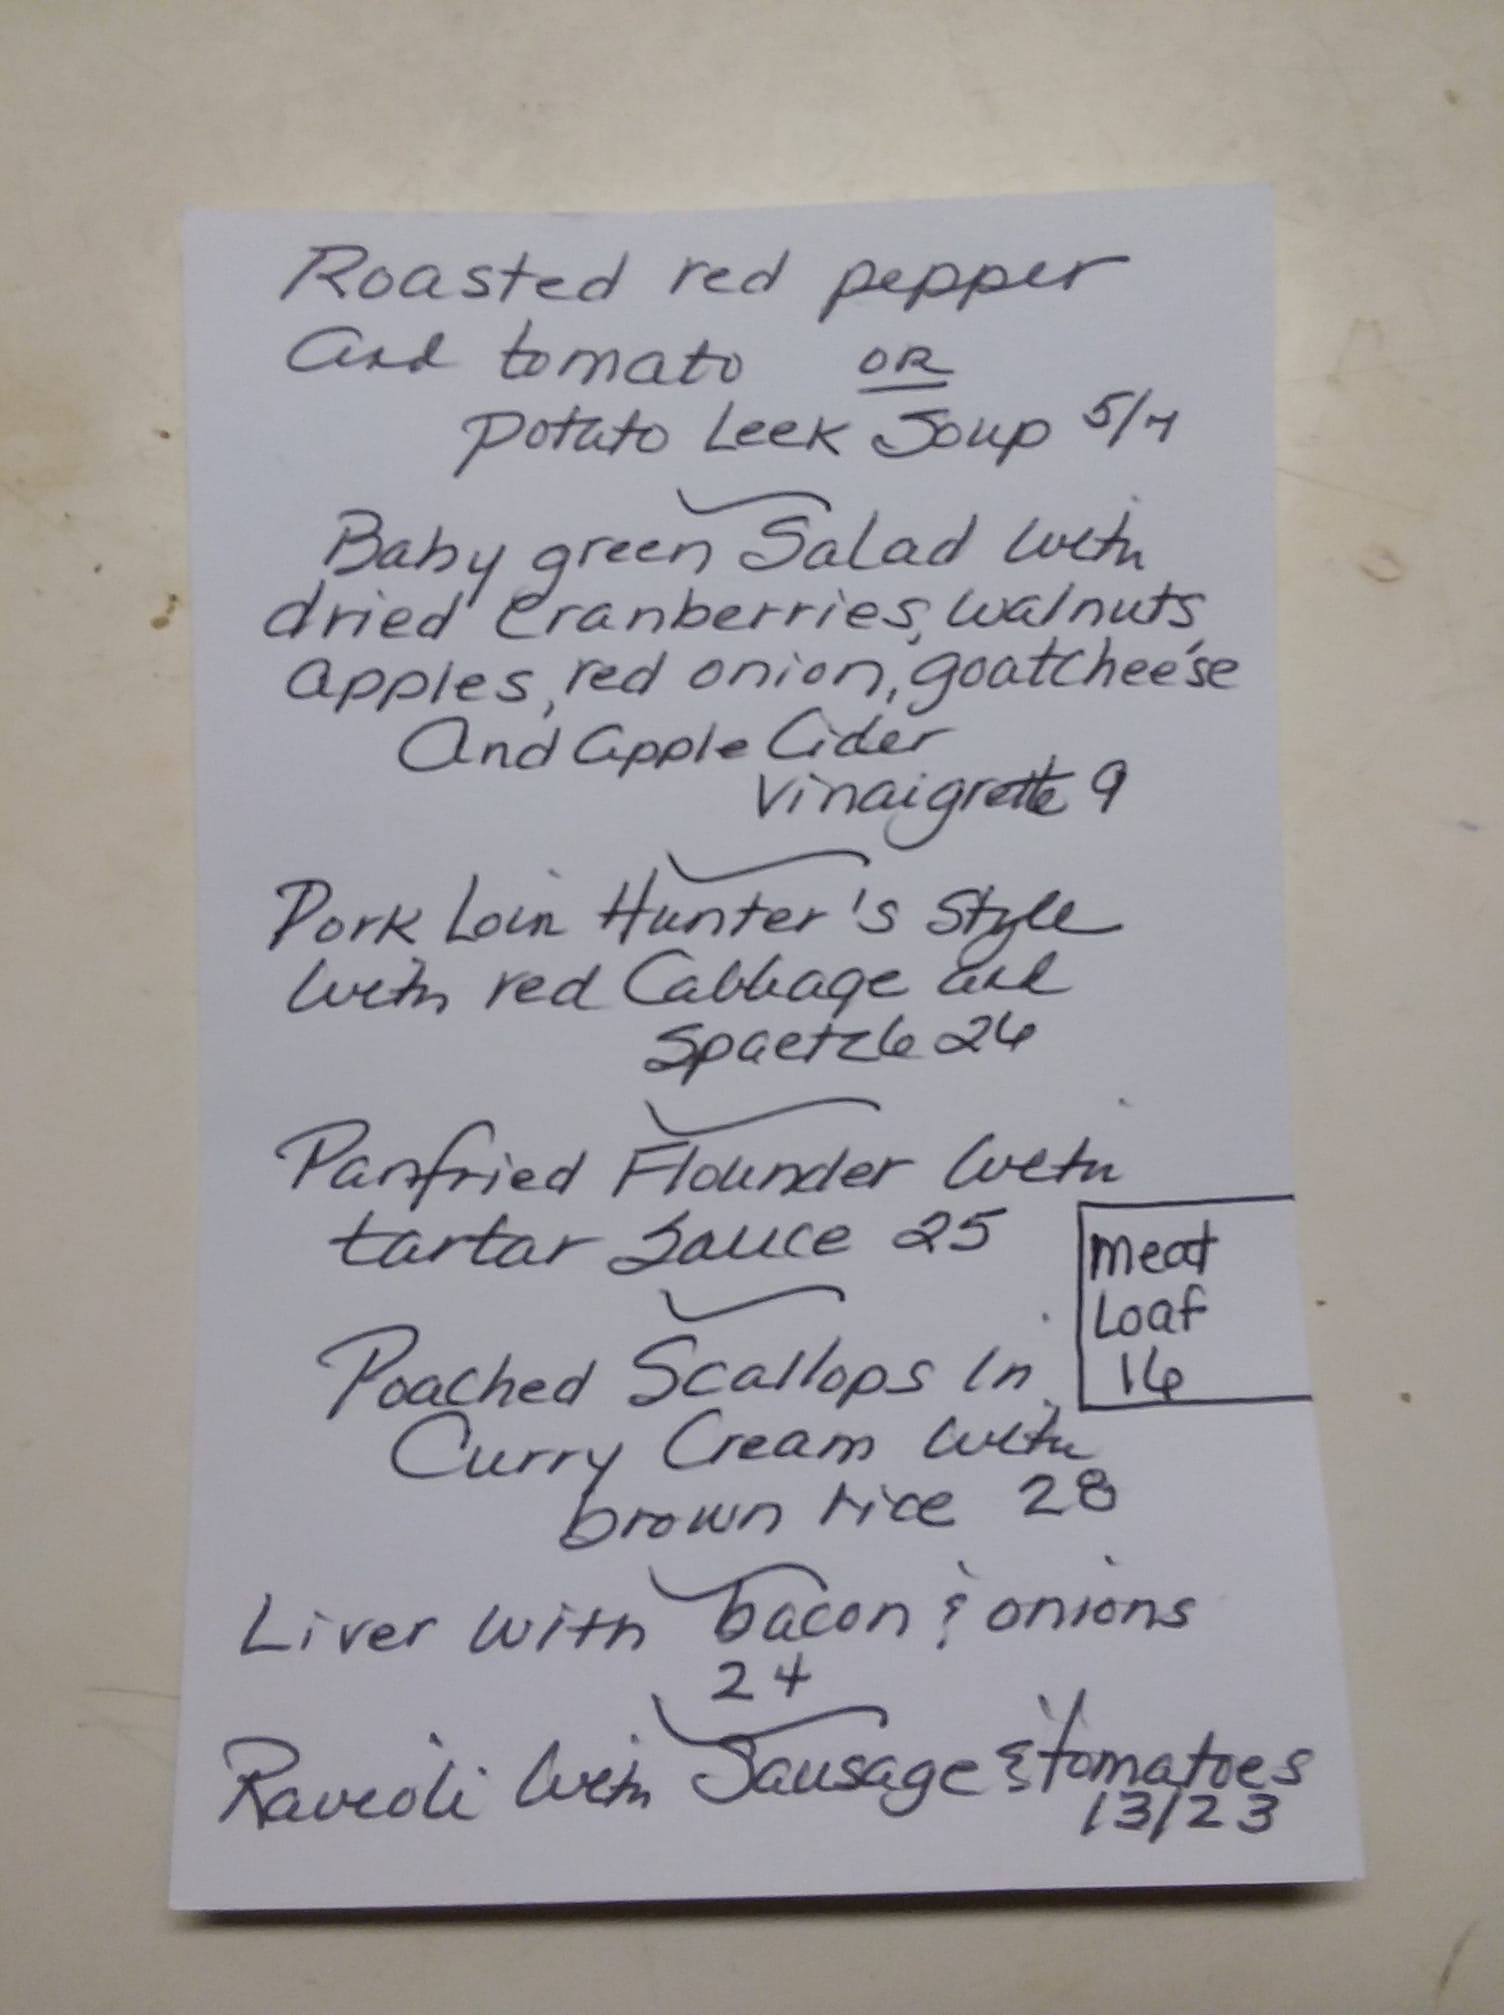 Roasted red pepper
and tomato OR
potato Leek Soup 5/7
Baby green Salad with
dried Cranberries, walnuts,
apples, red onion, goatcheese
And apple Cider
Vinaigrette 9
Pork Loin Hunter's Style
with red Cabbage and
Spaetzle 26
Panfried Flounder with
tartar Sauce 25
meat
Loaf
16
Poached Scallops in
Curry Cream with
brown rice 28
Liver with bacon & onions
24
Ravioli with Sausage & tomatoes
13/23